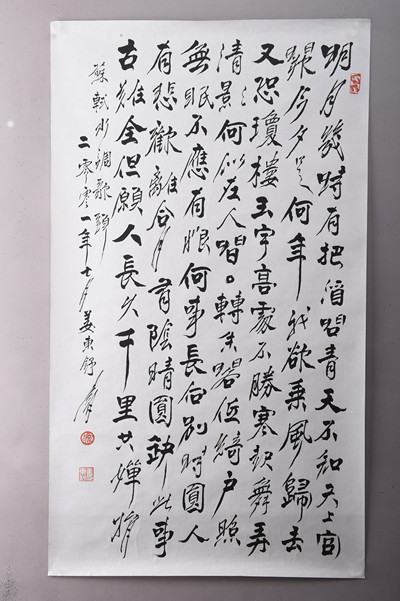 明月幾時有把酒問青天不知天上宮
闕今夕是何年我欲乘風歸去
又恐瓊樓玉宇高處不勝寒起舞弄
清景何似在人間。轉朱閣低綺戶照
無眠不應有恨何事長向別時圓人
有悲歡離合月有陰晴圓缺此事
古難全但願人長久千里共嬋娟
蘇軾水調歌頭
二零零一年七月姜東舒